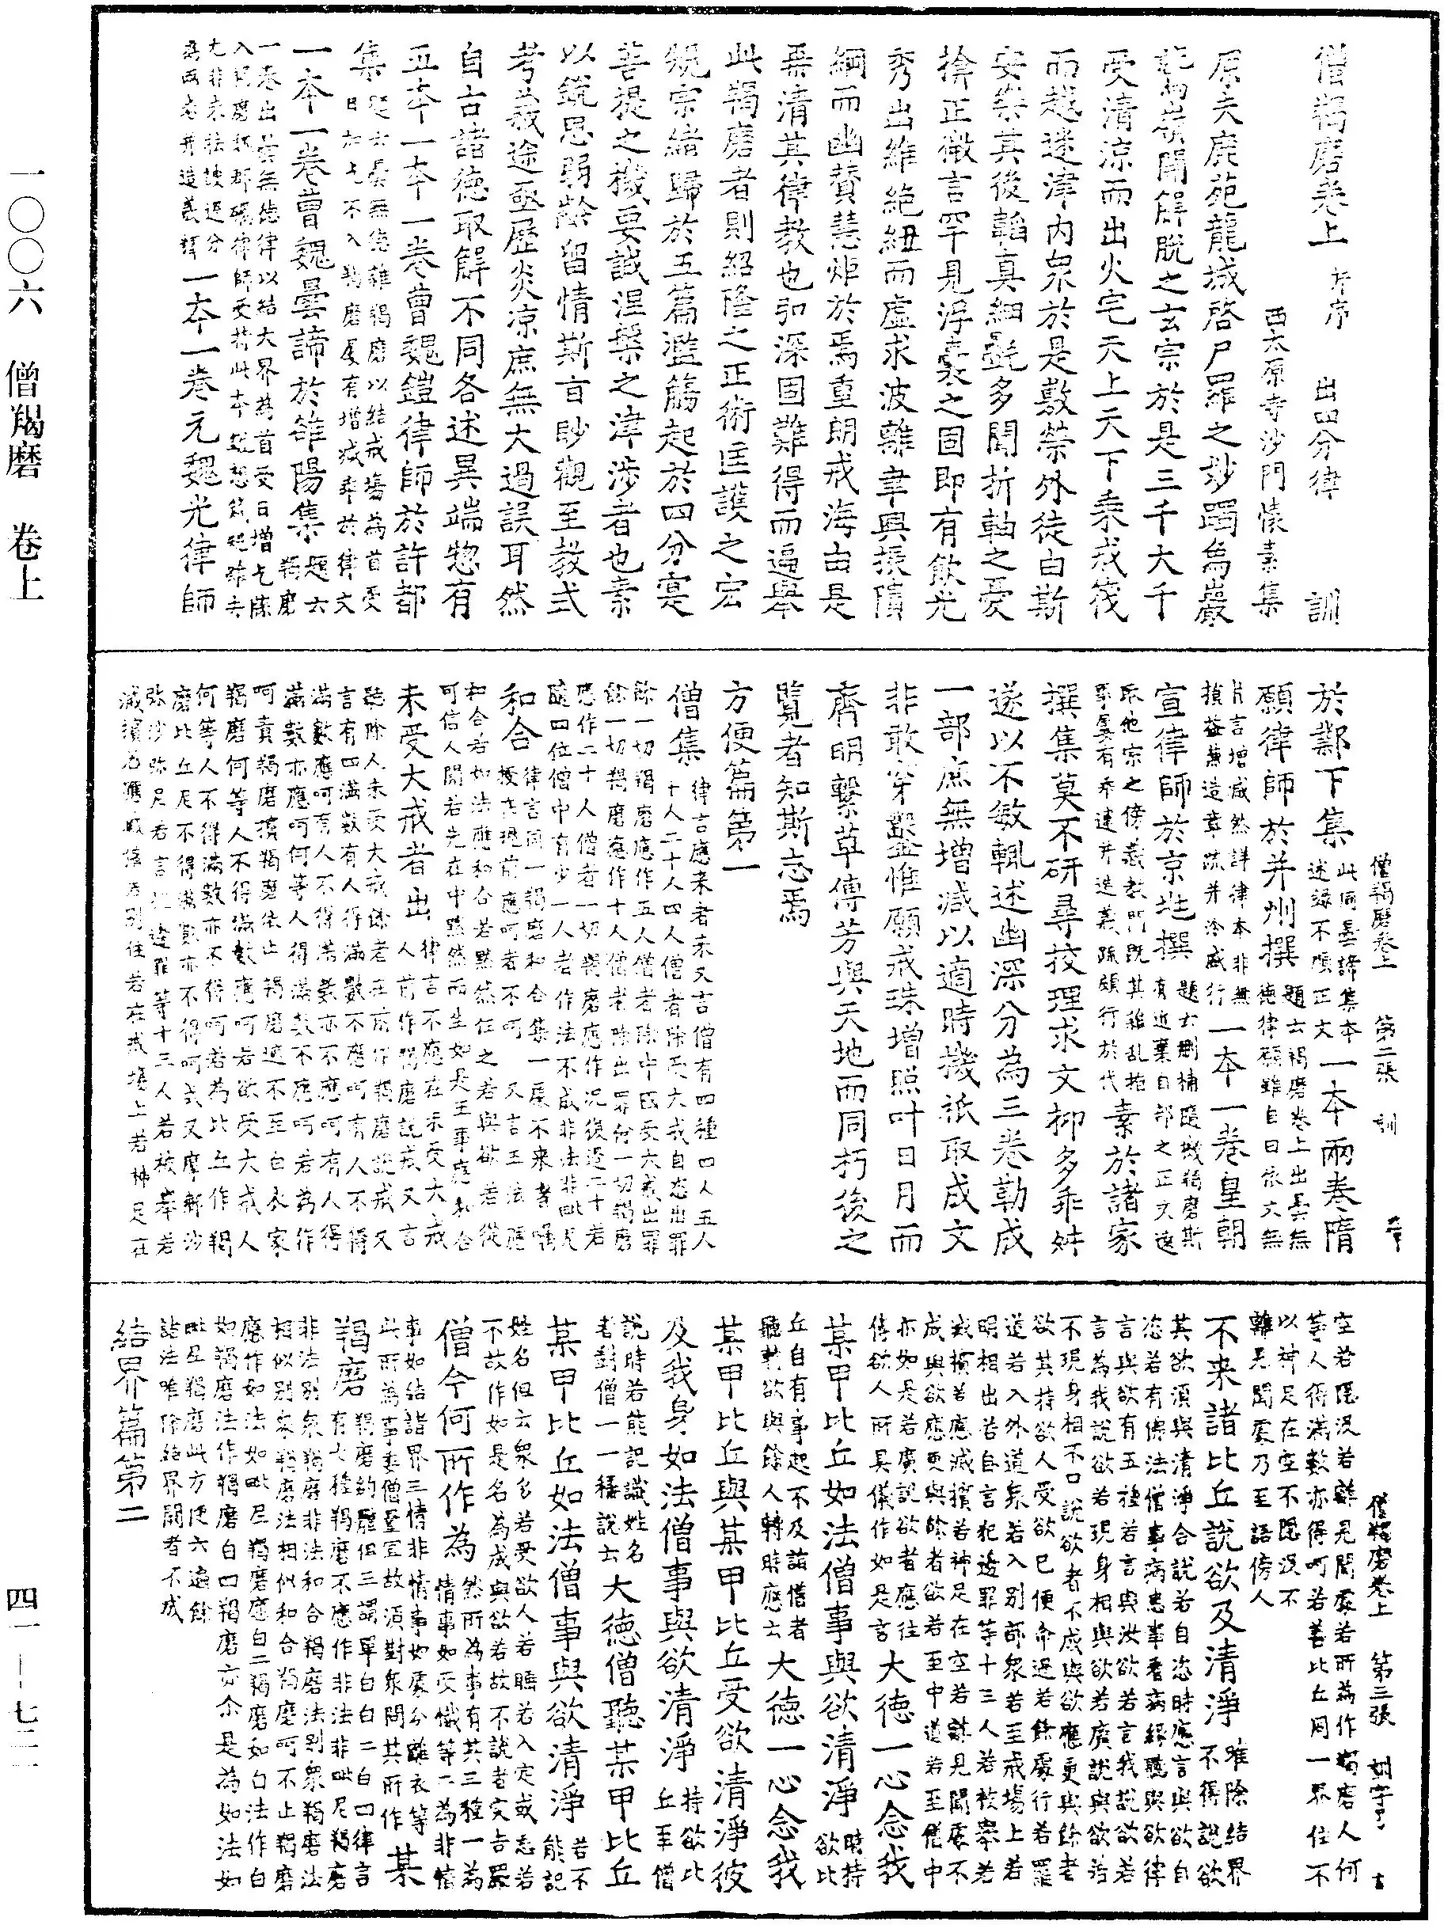 僧羯磨卷上 并序 出四分律 訓
西太原寺沙門懷素集
原夫鹿苑龍城啓尸羅之妙躅為巖
鷲嶺開解脫之玄宗於是三千大千
受清涼而出火宅天上天下乘戒筏
而越迷津內眾於是敷榮外徒自斯
安樂其後韜真細㲲多聞折軸之憂
捨正微言罕見浮囊之固即有飲光
秀出維絕紐而虛求波離聿興振隤
綱而幽贊慧炬於焉重朗戒海由是
再清其律教也弘深固難得而遍舉
此羯磨者則紹隆之正術匡護之宏
規宗緒歸於五篇濫觴起於四分寔
菩提之機要誠涅槃之津涉者也素
以銳思弱齡留情斯旨眇觀至教式
考義途亟歷炎涼庶無大過誤耳然
自古諸德取解不同各述異端惣有
五本一本一卷曹魏鎧律師於許都
集 題云曇無德雜羯磨以結戒場為首受
日加乞不入羯磨屢有增減乖於律文
一本一卷曹魏曇諦於雒陽集 題云羯磨
一卷出曇無德律以結大界為首受日增乞
入羯磨
一本一卷元魏光律師
於鄴下集 此同曇諦集本
述錄不順正文 一本兩卷隋
願律師於并州撰 題云羯磨卷上出曇無
德律願雖自曰依文無
片言增減然詳律本非無
損益兼造章疏并泠盛行 一本一卷皇朝
宣律師於京兆撰 題云刪補隨機羯磨斯
有近棄自部之正文遠
取他宗之傍義教門既其雜亂指
事屢有乖違并造義疏頗行於代 素於諸家
撰集莫不研尋校理求文抑多乖舛
遂以不敏輒述幽深分為三卷勒成
一部庶無增減以適時機祇取成文
非敢穿鑿惟願戒珠增照叶日月而
齊明繫草傳芳與天地而同朽後之
覽者知斯志焉
方便篇第一
僧集 律言應來者來又言僧有四種四人五人
十人二十人四人僧者除受大戒自恣出罪
餘一切羯磨應作五人僧者除中國受大戒出罪
餘一切羯磨應作十人僧者除出罪餘一切羯磨
應作二十人僧者一切羯磨應作況復過二十若
隨四位僧中有少一人者作法不成非法非毗尼
和合 律言同一羯磨和合集一處不來者囑
授在現前應呵者不呵 又言王法應
和合若如法應和合若默然任之若與欲若從
可信人聞若先在中默然而坐如是五事應和合
未受大戒者出 律言不應在未受大戒
人前作羯磨說戒又言
聽除人未受大戒餘者在前作羯磨說戒又
言有四滿數有人得滿數不應呵有人不得
滿數應呵有人不得滿數亦不應呵有人得
滿數亦應呵何等人得滿數不應呵若為作
呵責羯磨擯羯磨依止羯磨遮不至白衣家
羯磨何等人不得滿數應呵若欲受大戒人
何等人不得滿數亦不得呵若為比丘作羯
磨比丘尼不得滿數亦不得呵式叉摩那沙
彌沙彌尼若言犯邊罪等十三人若被舉若
滅擯若應滅擯若別住若在戒場上若神足在
空若隱沒若離見聞處若所為作羯磨人何
等人得滿數亦得呵若善比丘同一界住不
以神足在空不隱沒不
離見聞處乃至語傍人
不來諸比丘說欲及清淨 唯除結界
不得說欲
其欲須與清淨合說若自恣時應言與欲自
恣若有佛法僧事病患事看病緣聽與欲律
言與欲有五種若言與汝欲若言我說欲若
言為我說欲若現身相與欲若廣說與欲若
不現身相不口說欲者不成與欲應更與餘者
欲其持欲人受欲已便命過若餘處行若罷
道若入外道眾若入別部眾若至戒場上若
明相出若自言犯邊罪等十三人若被舉若
滅擯若應滅擯若神足在空若離見聞處不
成與欲應更與餘者欲若至中道若至僧中
亦如是若廣說欲者應往
傳欲人所具儀作如是言 大德一心念我
某甲比丘如法僧事與欲清淨 時持
欲比
丘自有事起不及詣僧者
聽轉欲與餘人轉時應云 大德一心念我
某甲比丘與某甲比丘受欲清淨彼
及我身如法僧事與欲清淨 持欲比
丘至僧
說時若能記識姓名
者對僧一一稱說云 大德僧聽某甲比丘
某甲比丘如法僧事與欲清淨 若不
能記
姓名但云眾多若受欲人若睡若入定或忘若
不故作如是名為成與欲若故不說者突吉羅
僧今何所作為 然所為事有其三種一為
情事如受懺等二為非情
事如結諸界三情非情事如處分離衣等
此所為事委僧量宜故須對眾問其所作 某
羯磨 羯磨韵雖但三謂單白白二白四律言
有七種羯磨不應作非法非毗尼羯磨
非法別眾羯磨非法和合羯磨法別眾羯磨法
相似別眾羯磨法相似和合羯磨呵不止羯磨
應作如法如毗尼羯磨應白二羯磨如白法作白
如羯磨法作羯磨白四羯磨亦尒是為如法如
毗尼羯磨此方便六通餘
諸法唯除結界開者不成
結界篇第二
僧羯磨卷上 第二張 訓
僧羯磨卷上 第三張 訓字号
一〇〇六 僧羯磨 卷上
四一—七二一